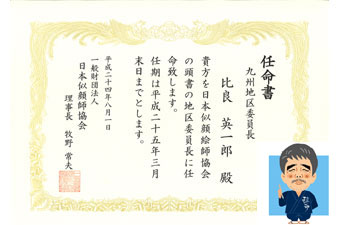 任命書
九州地区委員長
比良 英一郎 殿
貴方を日本似顔絵師協会
の頭書の地区委員長に任
命致します。
任期は平成二十五年三月
末日までとします。
平成二十四年八月一日
一般財団法人
日本似顔師協会
理事長 牧野 常夫